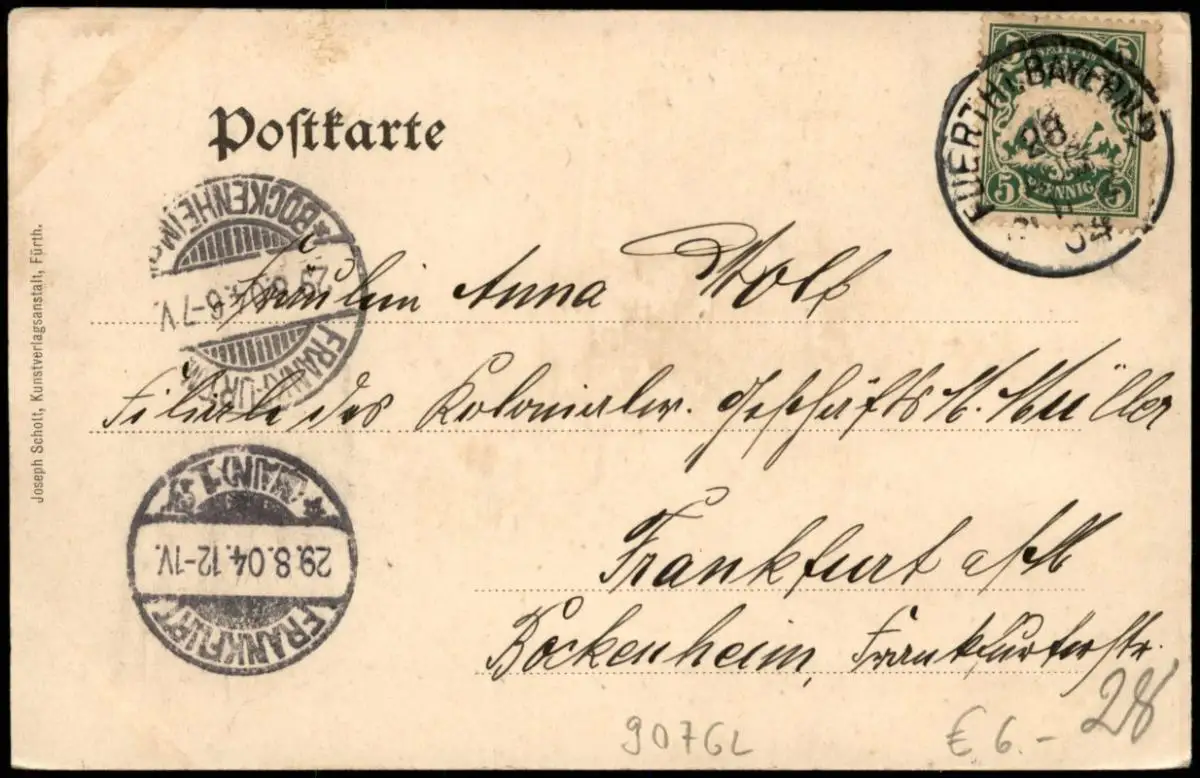 Postkarte
5 5
5 PFENNIG 5
FUERTH I. BAYERN 2
28
04
*BOCKENHEIM*
29.8.04. 6-7V.
FRANKFURT (M.
Fräulein Anna Wolf
Filiale des Kolonialw. Geschäfts M. Müller
Frankfurt a/M
Bockenheim, Frankfurterstr.
28
FRANKFURT
29.8.04.12-1V.
(MAIN) 1
Joseph Schott, Kunstverlagsanstalt, Fürth.
9076L
€ 6.-